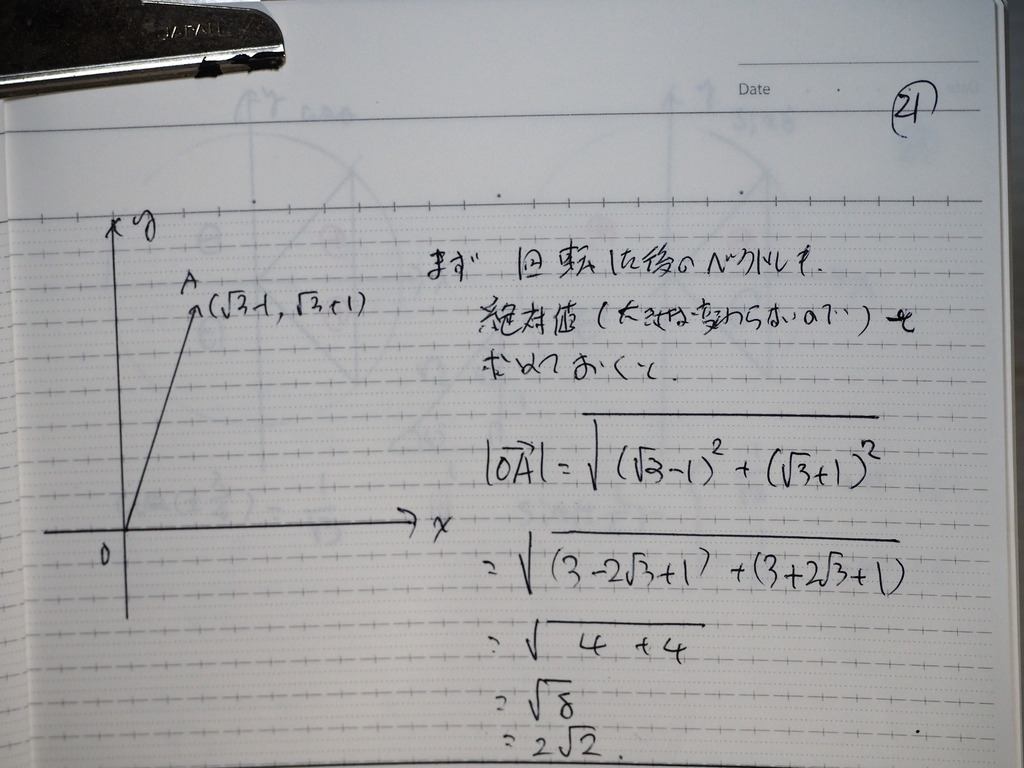 JAPAN
Date
21
y
A
(√3-1, √3+1)
x
0
まず 回転した後のベクトルも、
絶対値(大きさは変わらないので)を
求めておくと、
|OA| = √(√3-1)² + (√3+1)²
= √(3-2√3+1) + (3+2√3+1)
= √4 + 4
= √8
= 2√2.